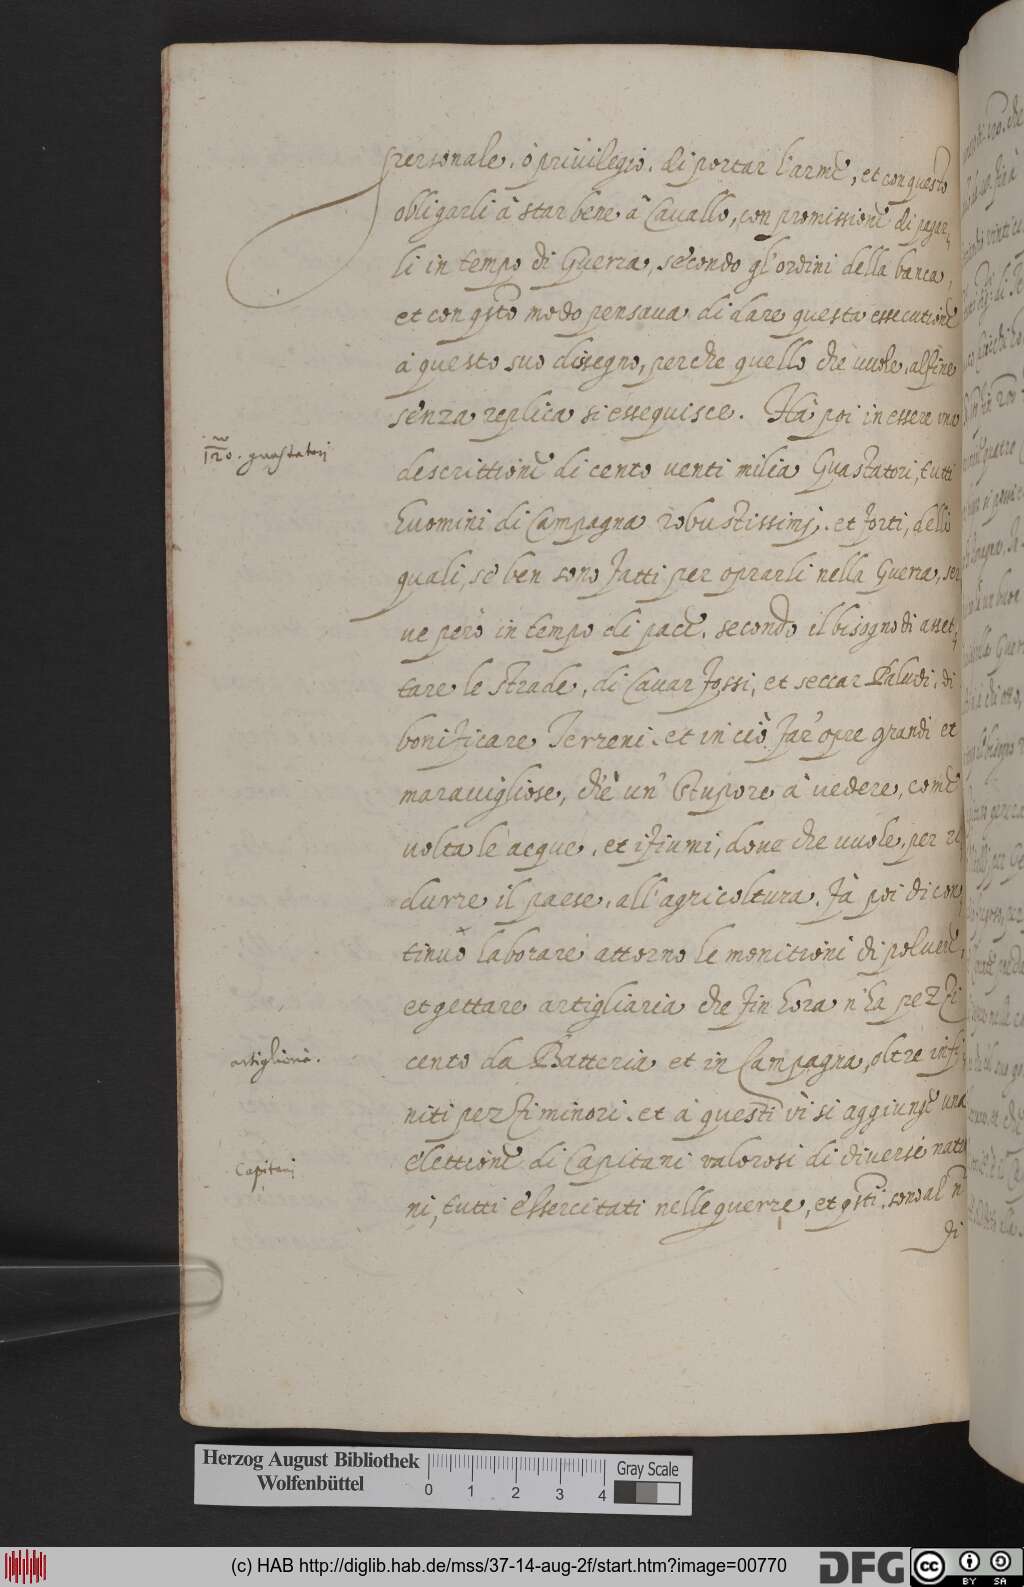 personale. ò priuilegio. di portar l'arme, et con questo
obligarli à star bene à Cauallo, con promissione di pagar,
li in tempo di Guerra, secondo gl'ordini della banca,
et con qsto modo pensaua di dare questa essecutione
à questo suo dissegno, perche quello che uuole, alfine
senza replica si essequisce. Hà poi in essere una
120. guastatorj
descrittione di cento uenti milia Guastatori, tutti
huomini di Campagna robustissimj. et forti, delli
quali, se ben sono fatti per oprarli nella Guerra, ser
ue però in tempo di pace. secondo il bisogno di asset,
tare le strade, di Cauar fossi, et seccar Paludi, di
bonificare Terreni. et in ciò far' opre grandi et
marauigliose, ch'è un' stupore à uedere, come
uolta le acque, et i fiumi, doue che uuole, per ri
durre il paese, all'agricoltura. Fà poi di con,
tinuo laborare attorno le monitioni di poluere,
et gettare artigliaria che fin hora n'ha pezzi
artigliaria.
cento da Batteria et in Campagna, oltre infi,
niti pezzi minori. et à questi ui si aggiunge una
Capitanj
elettione di Capitani valorosi di diuerse natio
ni, tutti essercitati nelle guerre, et qsti. sono al n°
di
Herzog August Bibliothek
Wolfenbüttel
0 1 2 3 4
Gray Scale
(c) HAB http://diglib.hab.de/mss/37-14-aug-2f/start.htm?image=00770
DFG
cc BY SA